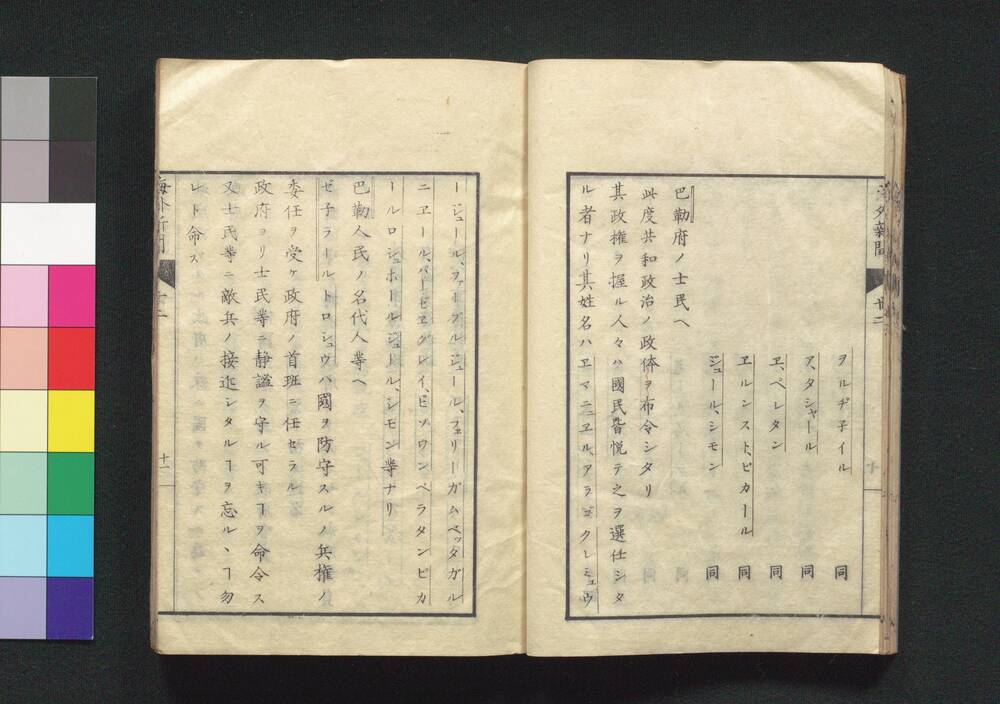 ヲルヂ子イル 同
ア、タシャール 同
ヱ、ペレタン 同
ヱルンスト、ピカール 同
ジュール、シモン 同
巴勒府ノ士民ヘ
此度共和政治ノ政体ヲ布令シタリ
其政権ヲ握ル人々ハ國民皆悦テ之ヲ選任シタ
ル者ナリ其姓名ハヱマニヱル、アラゴクレミュウ
ージュール、ファーブルジュール、フェリーガムベッタガル
ニヱール、パーヒヱグレイ、ビソワンペラタンピカ
ールロシュホールジュール、シモン等ナリ
巴勒人民ノ名代人等ヘ
ゼ子ラールトロシュウハ國ヲ防守スルノ兵権ノ
委任ヲ受ケ政府ノ首班ニ任セラル
政府ヨリ士民等ニ静謐ヲ守ル可キヿヲ命令ス
又士民等ニ敵兵ノ接近シタルヿヲ忘ルヽヿ勿
レト命ス
十二